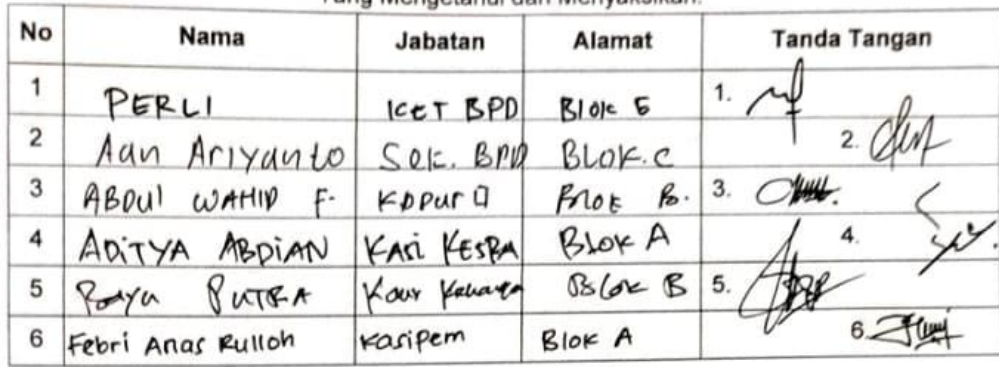 Yang Mengetahui dan Menyaksikan:
No Nama Jabatan Alamat Tanda Tangan
1 PERLI KET BPD Blok E 1.
2 Aan Ariyanto Sek. BPD BLOK.C 2.
3 ABDUl WAHID F. Blok B. 3.
4 ADiTYA ABDiAN KASi KESRA BLOK A 4.
5 PUTRA Kaur Blok B 5.
6 Febri Anas Rulloh Kasipem Blok A 6.